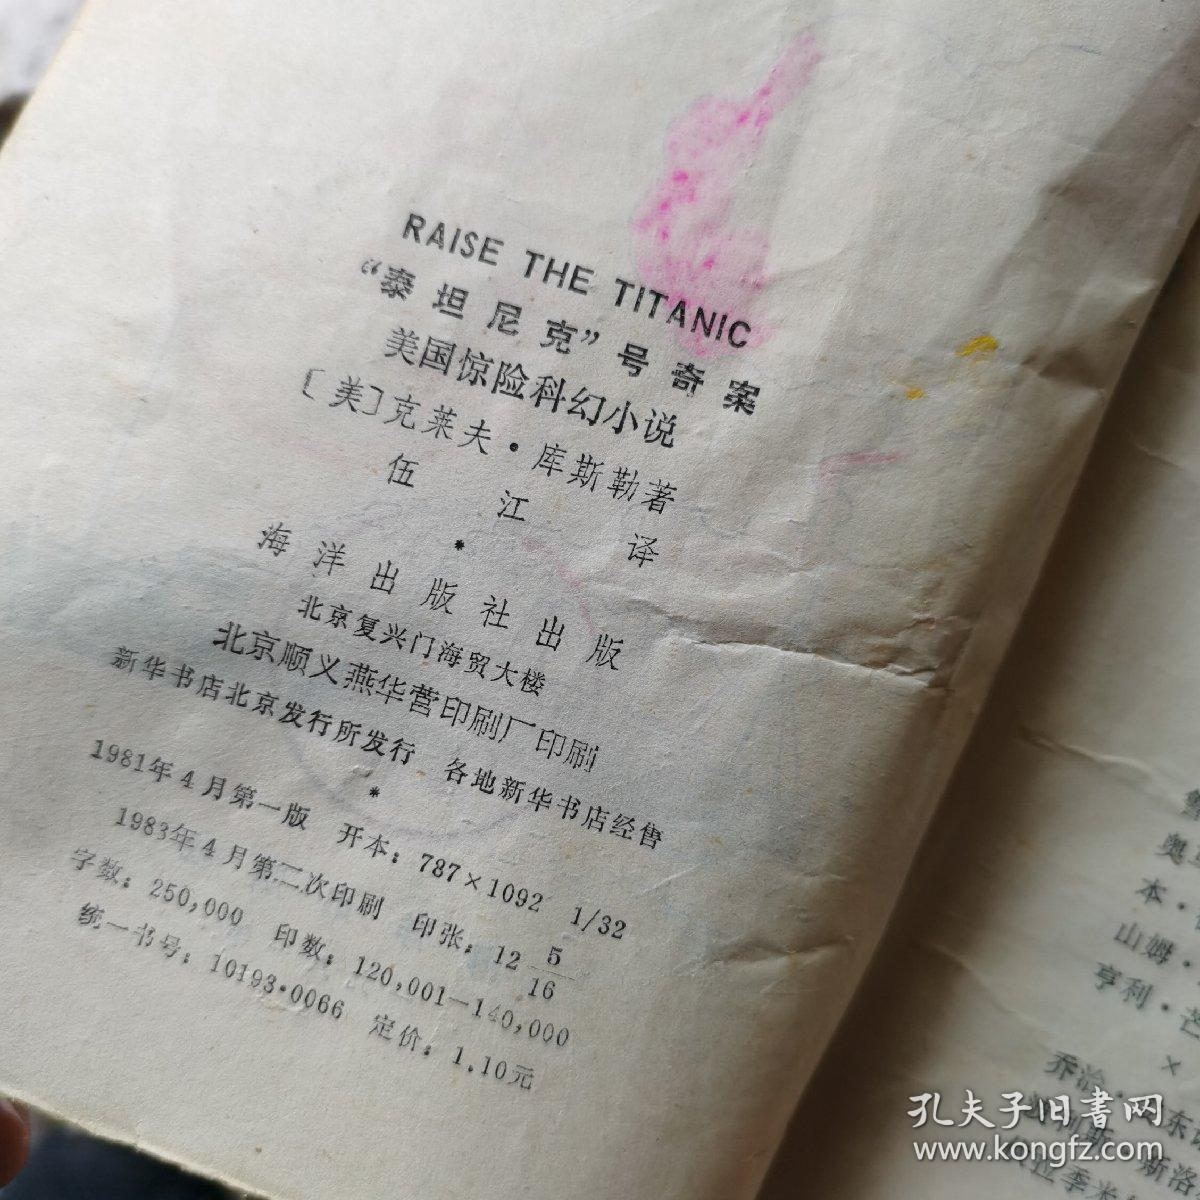 RAISE THE TITANIC
“泰坦尼克”号奇案
美国惊险科幻小说
〔美〕克莱夫·库斯勒著
伍江译
*
海洋出版社出版
北京复兴门海贸大楼
北京顺义燕华营印刷厂印刷
新华书店北京发行所发行 各地新华书店经售
*
1981年4月第一版 开本：787×1092 1/32
1983年4月第二次印刷 印张：12 5/16
字数：250,000 印数：120,001—140,000
统一书号：10193·0066 定价：1.10元
奥
本·
山姆·
亨利·芒
×
乔治·
东
斯洛
季
孔夫子旧书网
www.kongfz.com